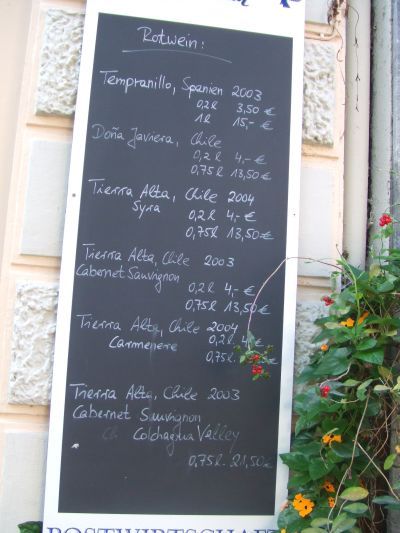 Rotwein:
Tempranillo, Spanien 2003
0,2 l 3,50 €
1 l 15,- €
Doña Javiera, Chile
0,2 l 4,- €
0,75 l 13,50 €
Tierra Alta, Chile 2004
Syra 0,2 l 4,- €
0,75 l. 13,50 €
Tierra Alta, Chile 2003
Cabernet Sauvignon
0,2 l 4,- €
0,75 l. 13,50 €
Tierra Alta, Chile 2004
Carmenere 0,2 l. 4,
0,75 l.
Tierra Alta, Chile 2003
Cabernet Sauvignon
Colchagua Valley
0,75 l. 21,50 €
POSTWIRTSCHAFT